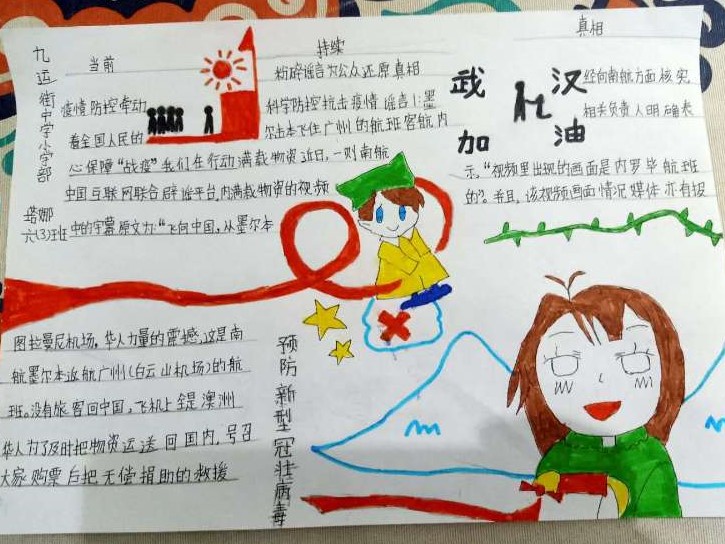 九运街中学小学部
塔娜
六(3)班
当前
疫情防控牵动
着全国人民的
心保障“战疫”我们在行动满载物资近日,一则南航
中国互联网联合辟谣平台,内满载物资的视频
中的字幕原文为:“飞向中国,从墨尔本
持续
粉碎谣言为公众还原真相
科学防控抗击疫情 谣言1:墨
尔本飞往广州的航班客舱内
真相
武汉
加油
经向南航方面核实,
相关负责人明确表
示,“视频里出现的画面是内罗毕航班
的”。并且,该视频画面情况媒体亦有报
图拉曼尼机场,华人力量的震撼,这是南
航墨尔本返航广州(白云山机场)的航
班。没有旅客回中国,飞机上全是澳洲
华人为了及时把物资运送回国内,号召
大家购票后把无偿捐助的救援
预防新型冠状病毒